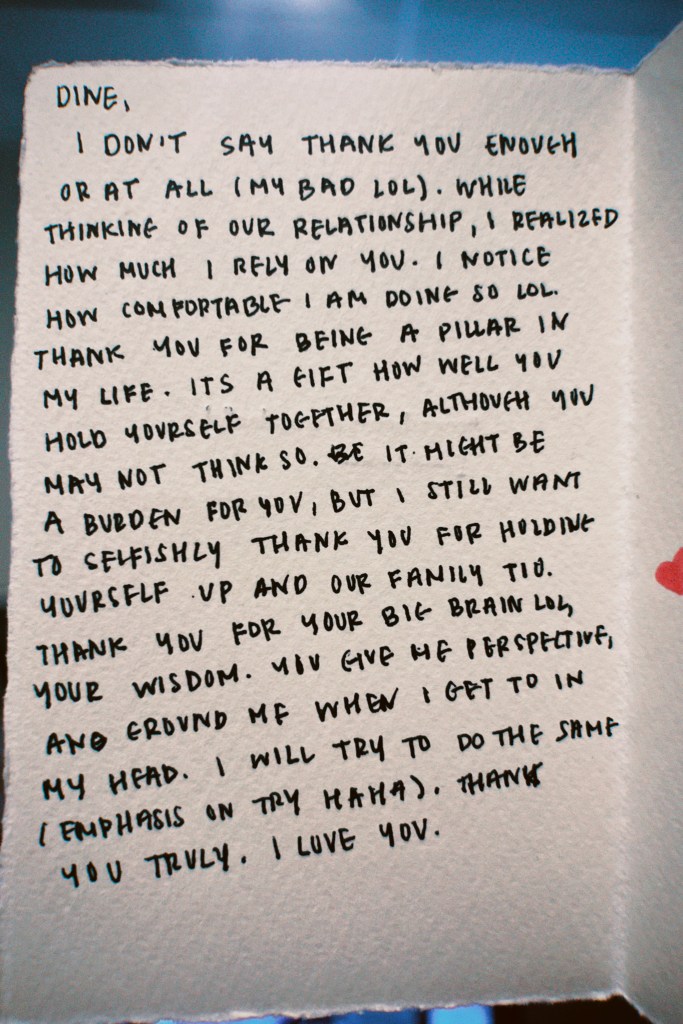 DINE,
I DON'T SAY THANK YOU ENOUGH
OR AT ALL (MY BAD LOL). WHILE
THINKING OF OUR RELATIONSHIP, I REALIZED
HOW MUCH I RELY ON YOU. I NOTICE
HOW COMFORTABLE I AM DOING SO LOL.
THANK YOU FOR BEING A PILLAR IN
MY LIFE. ITS A GIFT HOW WELL YOU
HOLD YOURSELF TOGETHER, ALTHOUGH YOU
MAY NOT THINK SO. IT MIGHT BE
A BURDEN FOR YOU, BUT I STILL WANT
TO SELFISHLY THANK YOU FOR HOLDING
YOURSELF UP AND OUR FAMILY TOO.
THANK YOU FOR YOUR BIG BRAIN LOL,
YOUR WISDOM. YOU GIVE ME PERSPECTIVE,
AND GROUND ME WHEN I GET TO IN
MY HEAD. I WILL TRY TO DO THE SAME
(EMPHASIS ON TRY HAHA). THANK
YOU TRULY. I LOVE YOU.